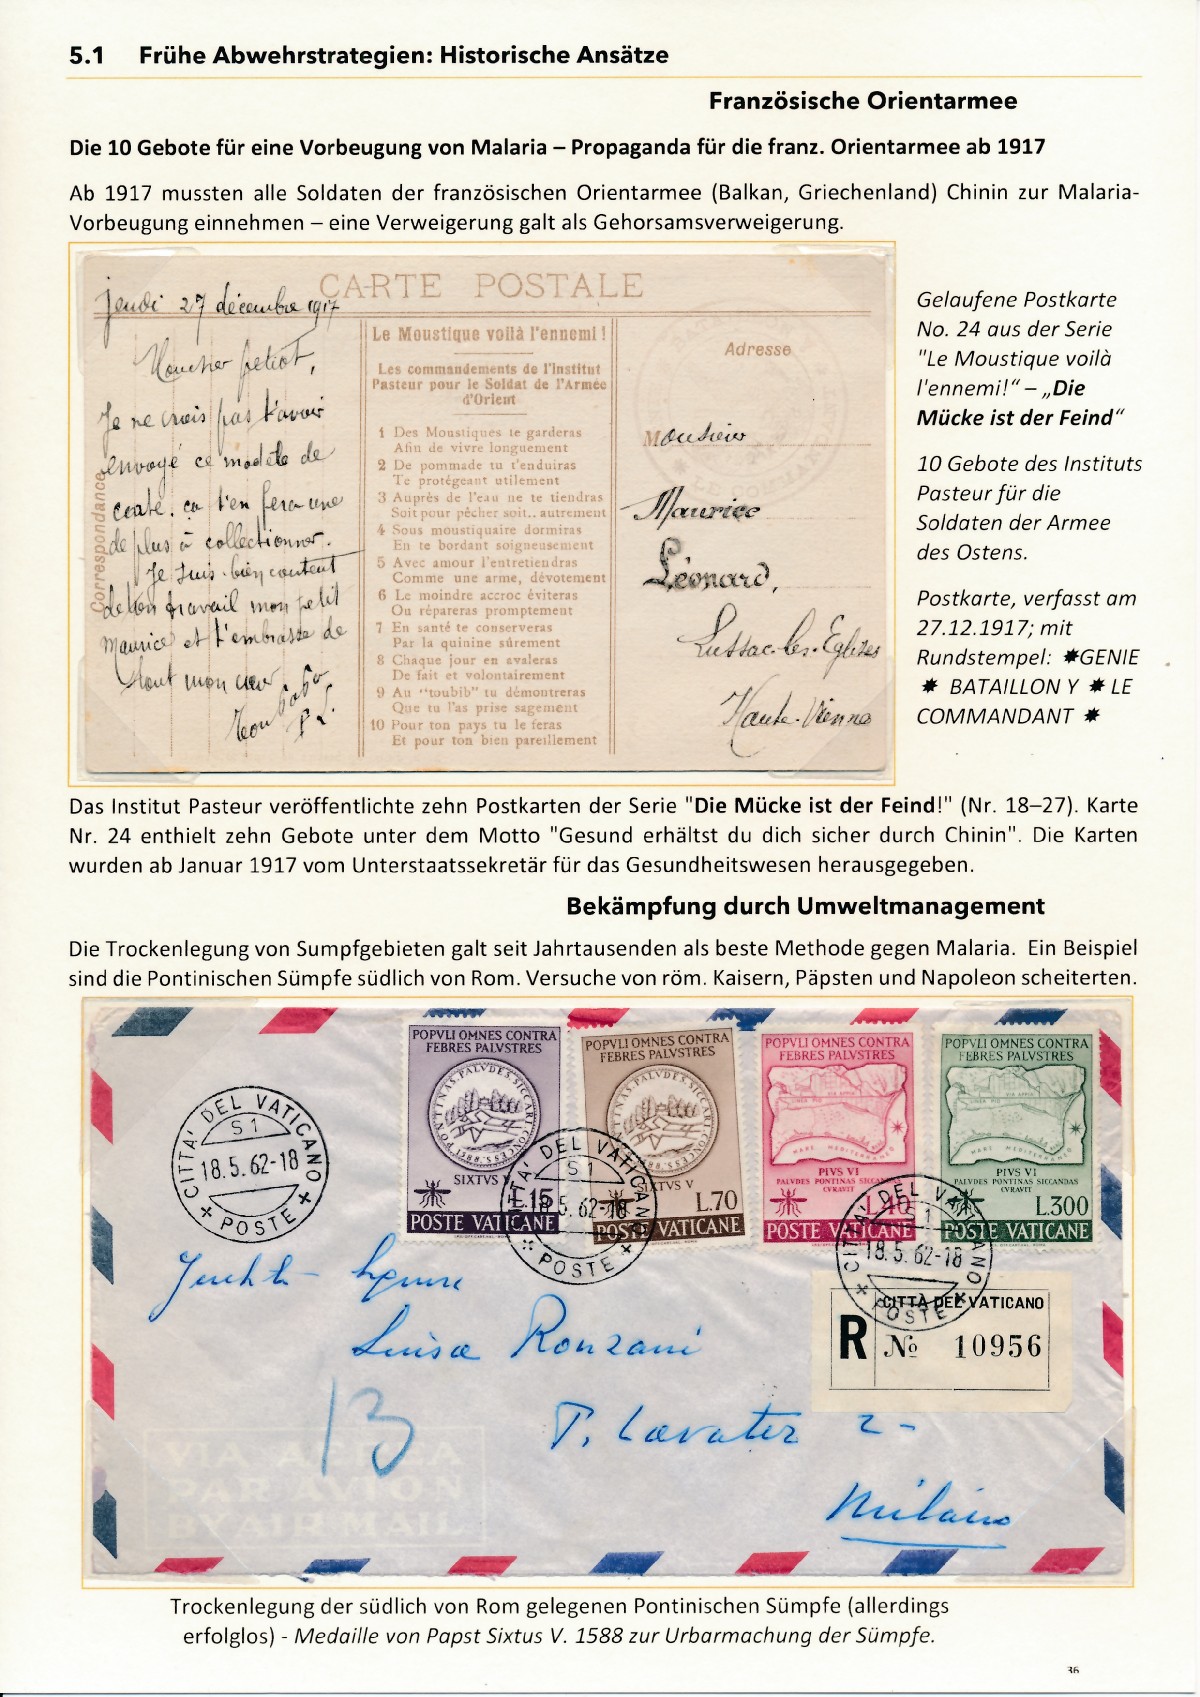 5.1 Frühe Abwehrstrategien: Historische Ansätze
Französische Orientarmee
Die 10 Gebote für eine Vorbeugung von Malaria – Propaganda für die franz. Orientarmee ab 1917
Ab 1917 mussten alle Soldaten der französischen Orientarmee (Balkan, Griechenland) Chinin zur Malaria-
Vorbeugung einnehmen – eine Verweigerung galt als Gehorsamsverweigerung.
CARTE POSTALE
Jeudi 27 décembre 1917
Mon cher petiot,
Je ne crois pas t'avoir
envoyé ce modèle de
carte. ça t'en fera une
de plus à collectionner.
Je suis bien content
de ton travail mon petit
Maurice et t'embrasse de
tout mon cœur
Correspondance
Le Moustique voilà l'ennemi !
Les commandements de l'Institut
Pasteur pour le Soldat de l'Armée
d'Orient
1 Des Moustiques te garderas
Afin de vivre longuement
2 De pommade tu t'enduiras
Te protégeant utilement
3 Auprès de l'eau ne te tiendras
Soit pour pêcher soit.. autrement
4 Sous moustiquaire dormiras
En te bordant soigneusement
5 Avec amour l'entretiendras
Comme une arme, dévotement
6 Le moindre accroc éviteras
Ou répareras promptement
7 En santé te conserveras
Par la quinine sûrement
8 Chaque jour en avaleras
De fait et volontairement
9 Au "toubib" tu démontreras
Que tu l'as prise sagement
10 Pour ton pays tu le feras
Et pour ton bien pareillement
Adresse
Monsieur
Maurice
Léonard,
Lussac-les-Eglises
Haute-Vienne
Gelaufene Postkarte
No. 24 aus der Serie
"Le Moustique voilà
l'ennemi!“ – „Die
Mücke ist der Feind“
10 Gebote des Instituts
Pasteur für die
Soldaten der Armee
des Ostens.
Postkarte, verfasst am
27.12.1917; mit
Rundstempel: ✸GENIE
✸ BATAILLON Y ✸ LE
COMMANDANT ✸
Das Institut Pasteur veröffentlichte zehn Postkarten der Serie "Die Mücke ist der Feind!" (Nr. 18–27). Karte
Nr. 24 enthielt zehn Gebote unter dem Motto "Gesund erhältst du dich sicher durch Chinin". Die Karten
wurden ab Januar 1917 vom Unterstaatssekretär für das Gesundheitswesen herausgegeben.
Bekämpfung durch Umweltmanagement
Die Trockenlegung von Sumpfgebieten galt seit Jahrtausenden als beste Methode gegen Malaria. Ein Beispiel
sind die Pontinischen Sümpfe südlich von Rom. Versuche von röm. Kaisern, Päpsten und Napoleon scheiterten.
CITTA' DEL VATICANO
S 1
18.5.62-18
POSTE
POPVLI OMNES CONTRA
FEBRES PALVSTRES
SIXTVS V
L.15
POSTE VATICANE
POPVLI OMNES CONTRA
FEBRES PALVSTRES
SIXTVS V
L.70
POSTE VATICANE
POPVLI OMNES CONTRA
FEBRES PALVSTRES
VIA APPIA
LINEA PIO
MARE MEDITERRANEO
PIVS VI
PALVDES PONTINAS SICCANDAS
CVRAVIT
L.40
POSTE VATICANE
POPVLI OMNES CONTRA
FEBRES PALVSTRES
VIA APPIA
LINEA PIO
MARE MEDITERRANEO
PIVS VI
PALVDES PONTINAS SICCANDAS
CVRAVIT
L.300
POSTE VATICANE
CITTA' DEL VATICANO
S 1
18.5.62-18
POSTE
CITTA' DEL VATICANO
S 1
18.5.62-18
POSTE
CITTÀ DEL VATICANO
R № 10956
Luisa Ronzani
13
T. Lavater 2-
Milano
VIA AEREA
PAR AVION
BY AIR MAIL
Trockenlegung der südlich von Rom gelegenen Pontinischen Sümpfe (allerdings
erfolglos) - Medaille von Papst Sixtus V. 1588 zur Urbarmachung der Sümpfe.
36